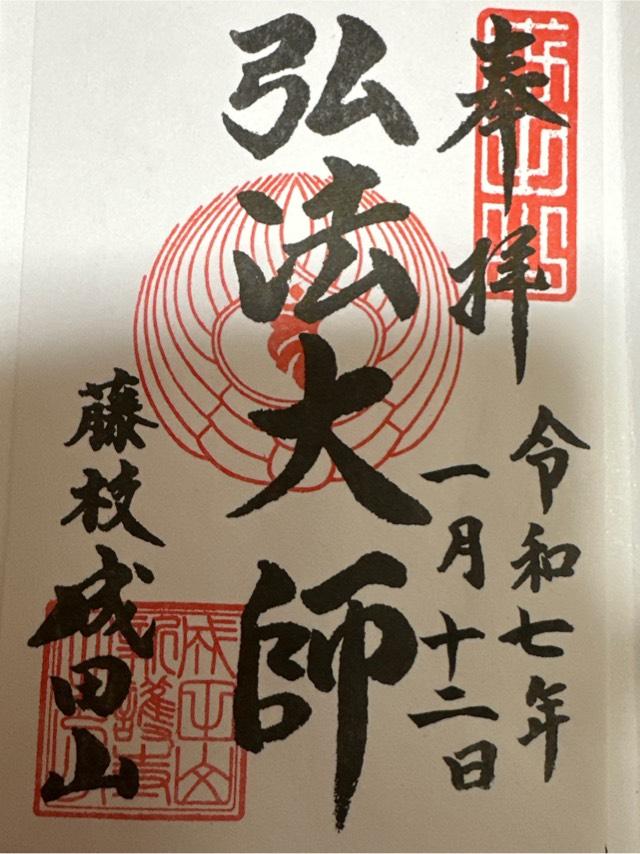 奉拝
令和七年
一月十二日
弘法大師
藤枝成田山